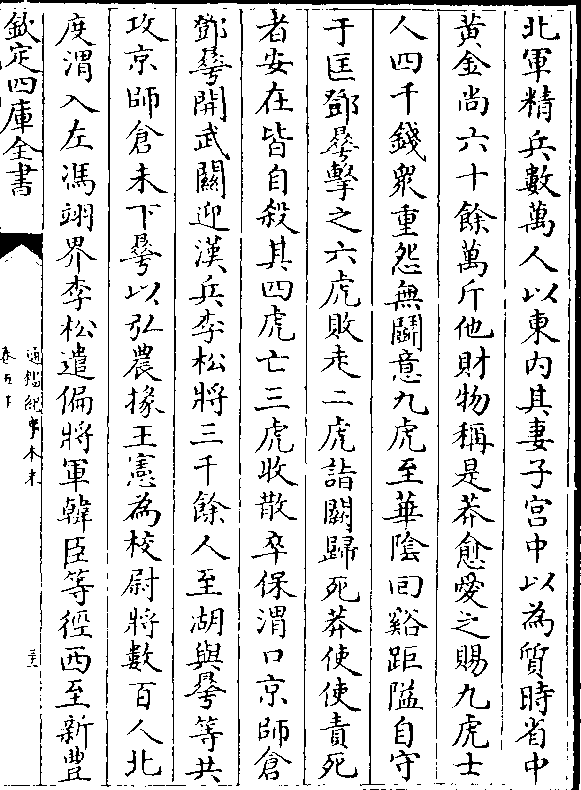 北軍精兵數萬人以東内其妻子宫中以為質時省中
黄金尚六十餘萬斤他財物稱是莽愈愛之賜九虎士
人四千錢衆重怨無鬬意九虎至華隂囘谿距隘自守
于匡鄧曅擊之六虎敗走二虎詣闕歸死莽使使責死
者安在皆自殺其四虎亡三虎收散卒保渭口京師倉
鄧曅開武關迎漢兵李松將三千餘人至湖與曅等共
攻京師倉未下曅以弘農掾王憲為校尉將數百人北
度渭入左馮翊界李松遣偏將軍韓臣等徑西至新豐
欽定四庫全書
通鑑紀事本末
卷五下